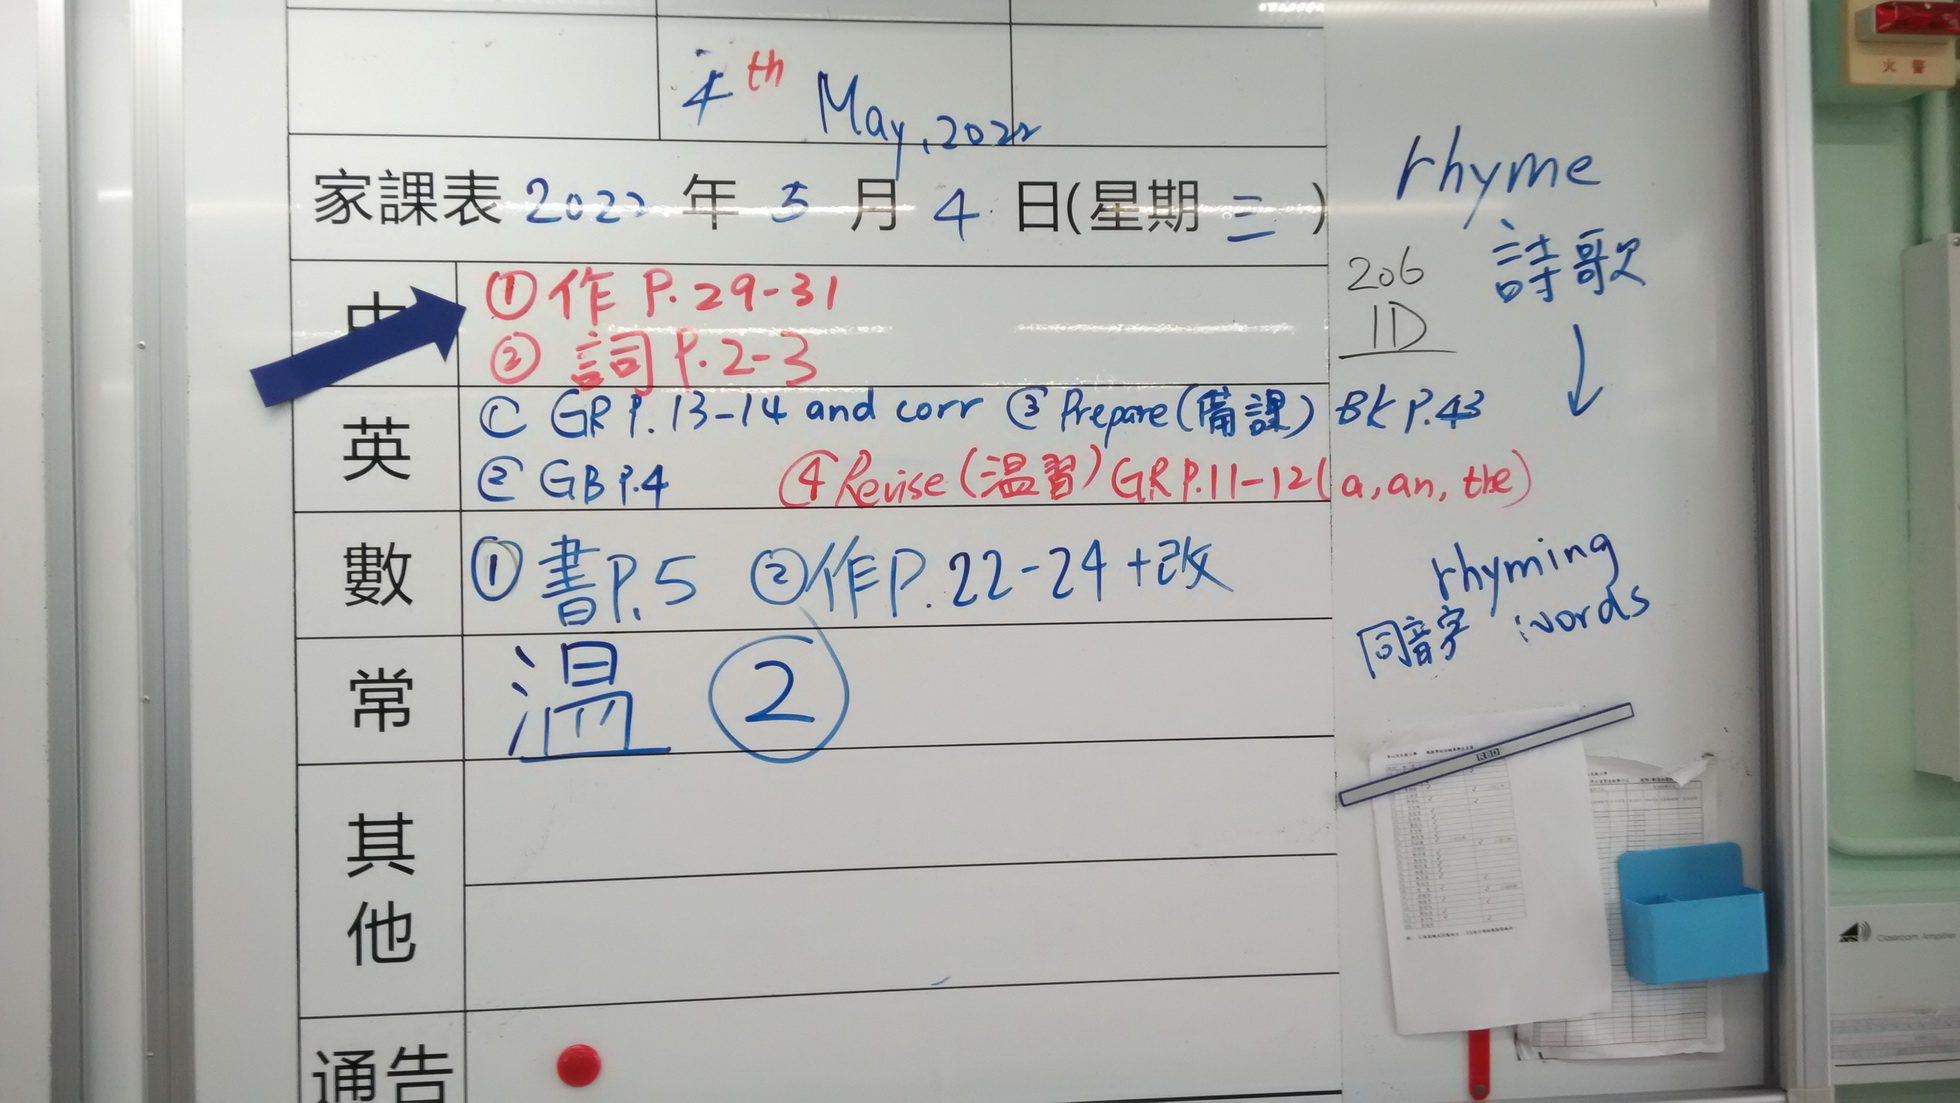 4th May, 2022
家課表 2022 年 5 月 4 日(星期 三 )
中 ①作 P.29-31
② 詞 P.2-3
英 ① GR P.13-14 and corr ③ Prepare(備課) BK P.43
② GB P.4 ④ Revise(温習) GR P.11-12(a, an, the)
數 ① 書P.5 ②作P.22-24+改
常 温 ②
其他
通告
rhyme
詩歌
206
1D
rhyming
同音字 words
火警
Classroom Amplifier